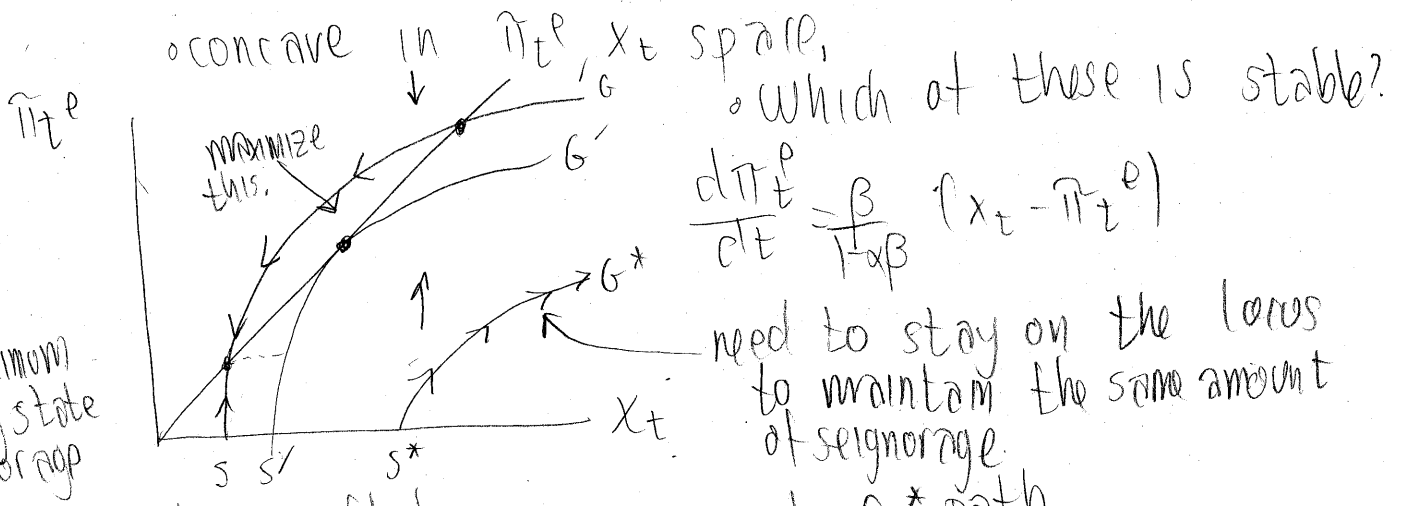 ∘ concave in π_t^e, x_t space,
∘ Which of these is stable?
π_t^e
G
maximize
this.
G′
dπ_t^e/dt = β/(1-αβ) (x_t - π_t^e)
G*
need to stay on the locus
to maintain the same amount
of seignorage
state
x_t
s s′ s*
path